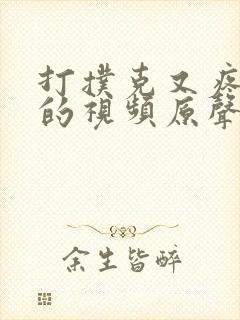 打撲克又疼
的視頻原聲
余生皆醉